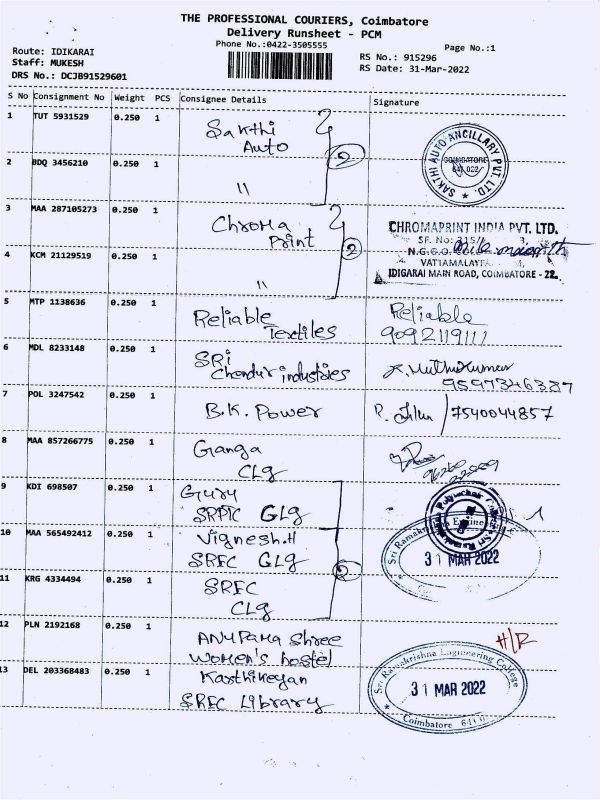 THE PROFESSIONAL COURIERS, Coimbatore
Delivery Runsheet - PCM
Phone No.:0422-3505555
Page No.:1
Route: IDIKARAI
Staff: MUKESH
DRS No.: DCJB91529601
RS No.: 915296
RS Date: 31-Mar-2022
S No Consignment No Weight PCS Consignee Details Signature
1 TUT 5931529 0.250 1 Sakthi
Auto
SAKTHI AUTO ANCILLARY PVT. LTD.
COIMBATORE
641 022
2 BDQ 3456210 0.250 1 "
2
3 MAA 287105273 0.250 1 Chroma
Print
2
CHROMAPRINT INDIA PVT. LTD.
SF. No: 315/ 3,
N.G.G.O.
VATTAMALAYPA
IDIGARAI MAIN ROAD, COIMBATORE - 22.
4 KCM 21129519 0.250 1 "
5 MTP 1138636 0.250 1 Reliable
Textiles
Reliable
9092119111
6 MDL 8233148 0.250 1 SRI
Chendur industries
R. Muthukumar
9597346387
7 POL 3247542 0.250 1 B.K. Power
7540044857
8 MAA 857266775 0.250 1 Ganga
Clg
9 KDI 698507 0.250 1 Guru
SRPTC Clg
10 MAA 565492412 0.250 1 Vignesh.H
SREC Clg
Sri Ramakrishna Engine
31 MAR 2022
11 KRG 4334494 0.250 1 SREC
Clg
12 PLN 2192168 0.250 1 Anupama Shree
Women's hostel
H/R
13 DEL 203368483 0.250 1 Karthikeyan
SREC Library
Sri Ramakrishna Engineering College
31 MAR 2022
Coimbatore